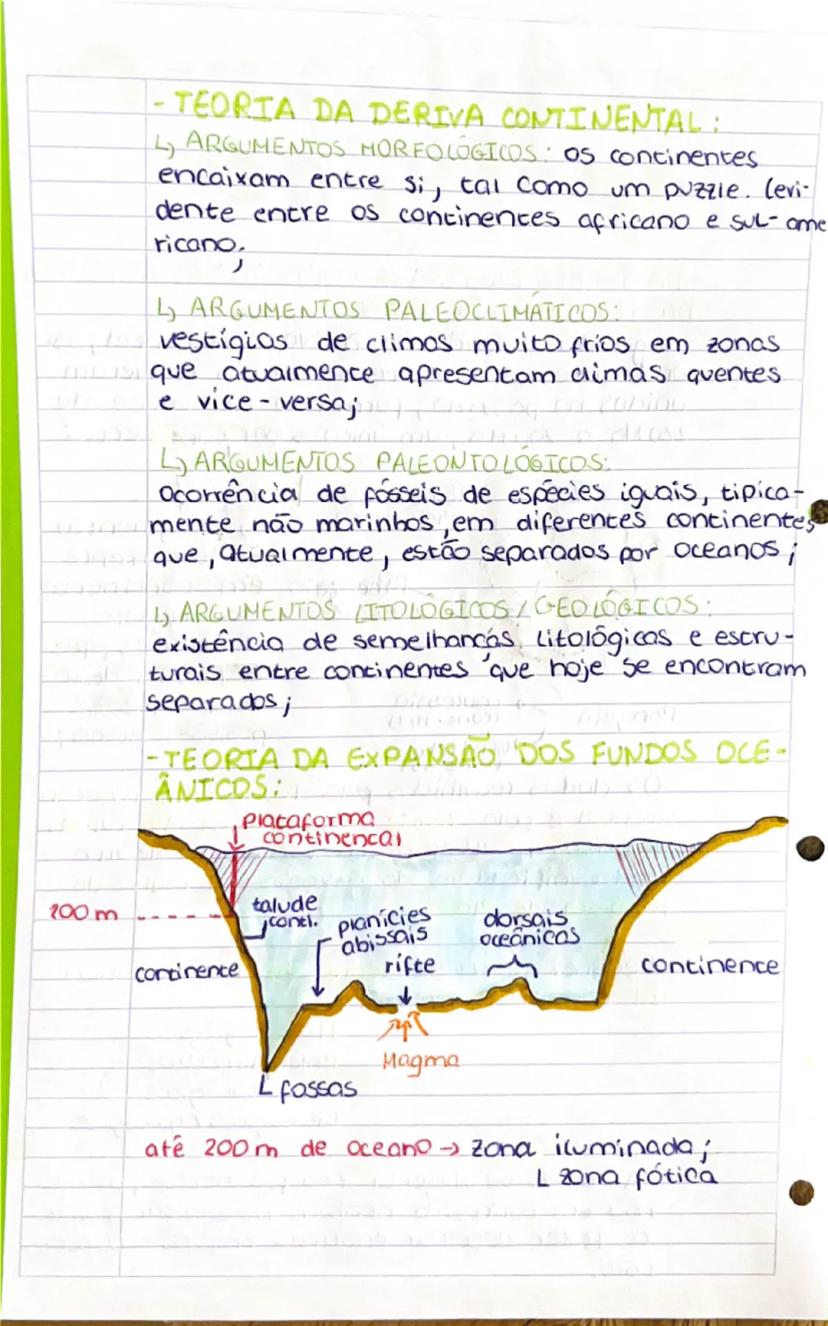 - TEORIA DA DERIVA CONTINENTAL:
↳ ARGUMENTOS MORFOLÓGICOS: os continentes
encaixam entre si, tal como um puzzle. (evi-
dente entre os continentes africano e sul-ame
ricano;
↳ ARGUMENTOS PALEOCLIMÁTICOS:
vestígios de climas muito frios em zonas
que atualmente apresentam climas quentes
e vice-versa;
↳ ARGUMENTOS PALEONTOLÓGICOS:
ocorrência de fósseis de espécies iguais, tipica-
mente não marinhos, em diferentes continentes
que, atualmente, estão separados por oceanos;
↳ ARGUMENTOS LITOLÓGICOS/GEOLÓGICOS:
existência de semelhanças litológicas e estru-
turais entre continentes que hoje se encontram
separados;
- TEORIA DA EXPANSÃO DOS FUNDOS OCE-
ÂNICOS:
plataforma
continental
200 m
talude
conti.
planícies
abissais
rifte
dorsais
oceânicas
continente
continente
Magma
fossas
até 200 m de oceano → zona iluminada;
zona fótica